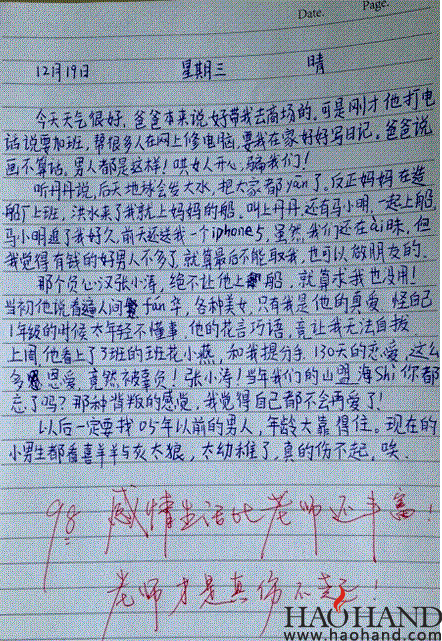 Date.
Page.
12月19日 星期三 晴
今天天气很好，爸爸本来说好带我去商场的，可是刚才他打电
话说要加班，帮很多人在网上修电脑，要我在家好好写日记。爸爸说
画不算话，男人都是这样！哄女人开心，骗我们！
听丹丹说，后天地球会发大水，把大家都yān了，反正妈妈在造
船厂上班，洪水来了我就上妈妈的船。叫上丹丹还有马小明，一起上船，
马小明追了我好久，前天还送我一个iphone5，虽然我们还在ài昧，但
我觉得有钱的好男人不多了，就算最后不能取我，也可以做朋友的。
那个负心汉张小涛，绝不让他上船，就算求我也没用！
当初他说看遍人间fán华，各种美女，只有我是他的真爱，怪自己
1年级的时候太年轻不懂事，他的花言巧语，竟让我无法自拔
上周他看上了3班的班花小燕，和我提分手，130天的恋爱，这么
多恩爱，竟然被辜负！张小涛！当年我们的山盟海Shi你都
忘了吗？那种背叛的感觉，我觉得自己都不会再爱了！
以后一定要找05年以前的男人，年龄大靠得住。现在的
小男生都看喜羊羊与灰太狼，太幼稚了，真的伤不起，唉。
98 感情生活比老师还丰富！
老师才是真伤不起！
HAOHAND
www.haohand.com